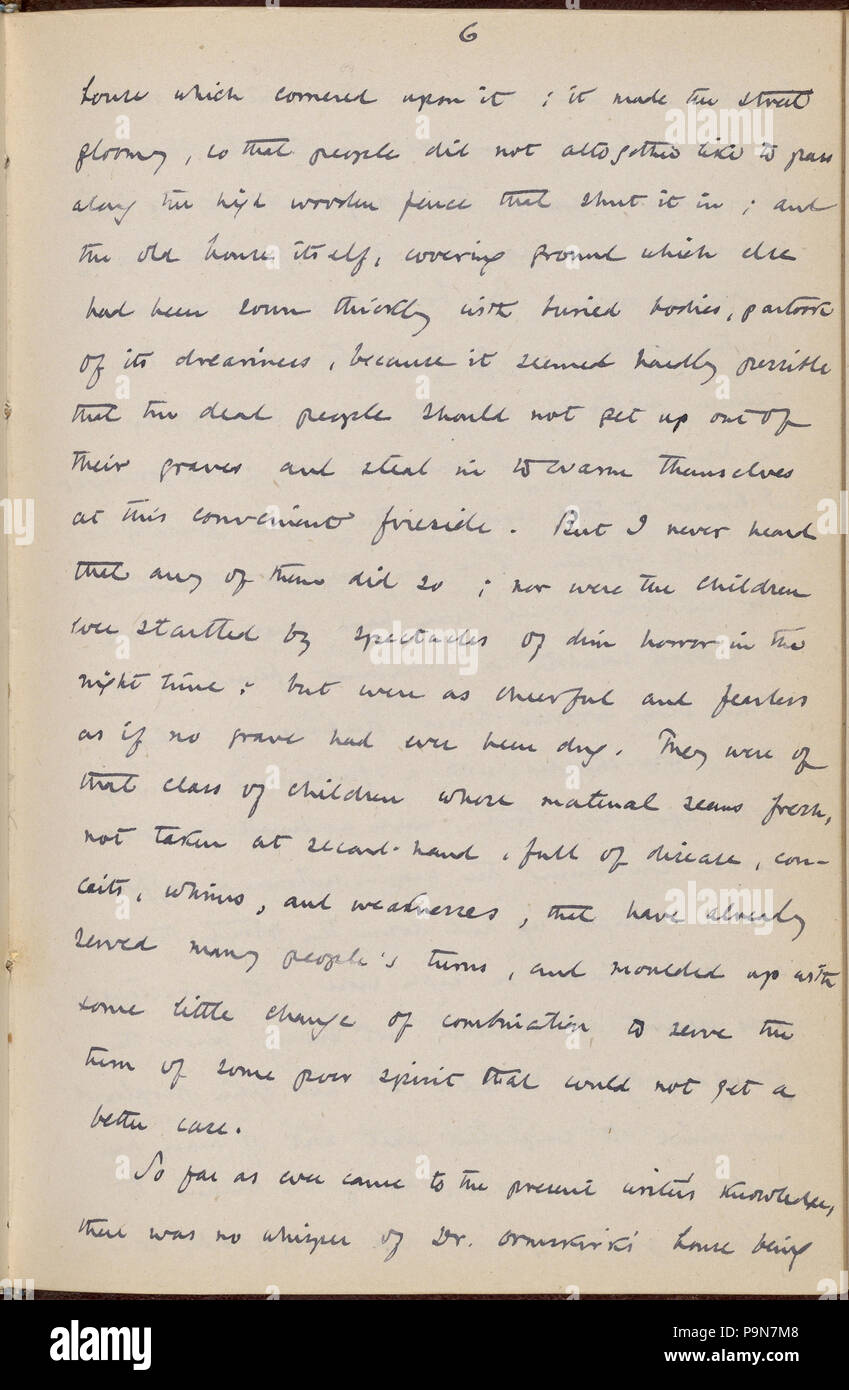 6
house which cornered upon it ; it made the street
gloomy, so that people did not altogether like to pass
along the high wooden fence that shut it in ; and
the old house itself, covering ground which else
had been sown thickly with buried bodies, partook
of its dreariness, because it seemed hardly possible
that the dead people should not get up out of
their graves and steal in to warm themselves
at this convenient fireside. But I never heard
that any of them did so ; nor were the children
ever startled by spectacles of dim horror in the
night time ; but were as cheerful and fearless
as if no grave had ever been dug. They were of
that class of children whose material seems fresh,
not taken at second-hand, full of disease, con-
ceits, whims, and weaknesses, that have already
served many people's turns, and moulded up with
some little change of combination to serve the
turn of some poor spirit that could not get a
better case.
So far as ever came to the present writer's knowledge,
there was no whisper of Dr. Ormskirk's house being
alamy
alamy
Image ID: P9N7M8
www.alamy.com